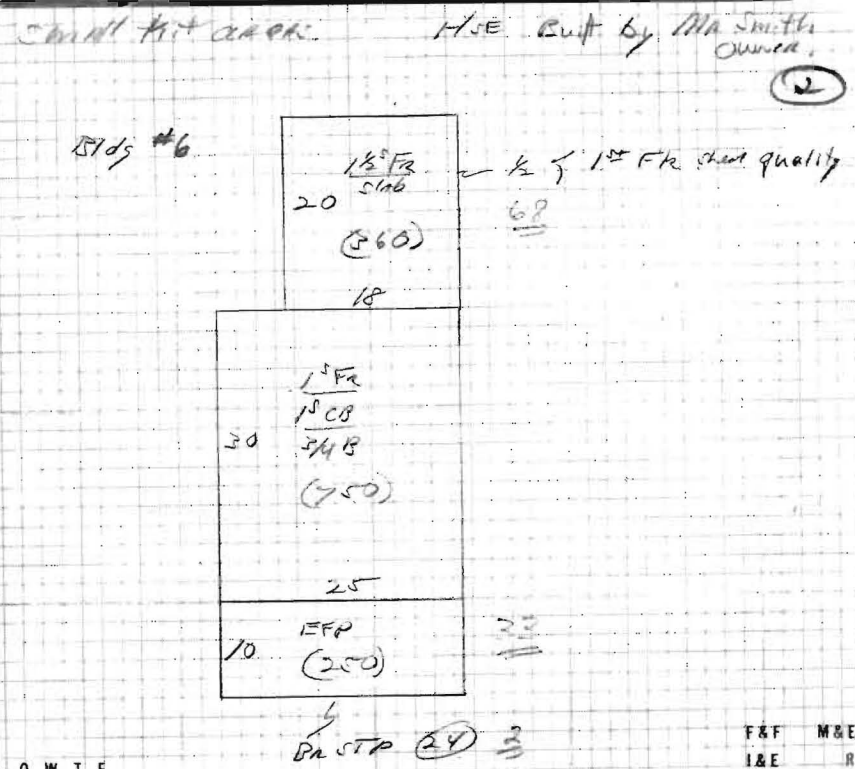 Small Kit areas. HSE Built by Mr Smith
Owner.
2
Bldg #6
1½ˢ FR
slab
½ of 1st FR shed quality
20
68
(360)
18
1ˢ FR
1ˢ CB
3/4 B
30
(750)
25
EFP
10
(250)
BR STP (24) 2
F&F M&E
O W T F
I&E R